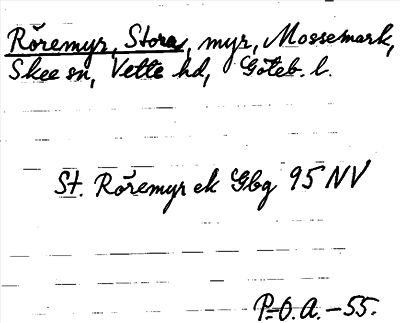 Röremyr, Stora, myr, Mossemark,
Skee sn, Vette hd, Göteb. l.
St. Röremyr ek Gbg 95 NV
P.O.A. - 55.